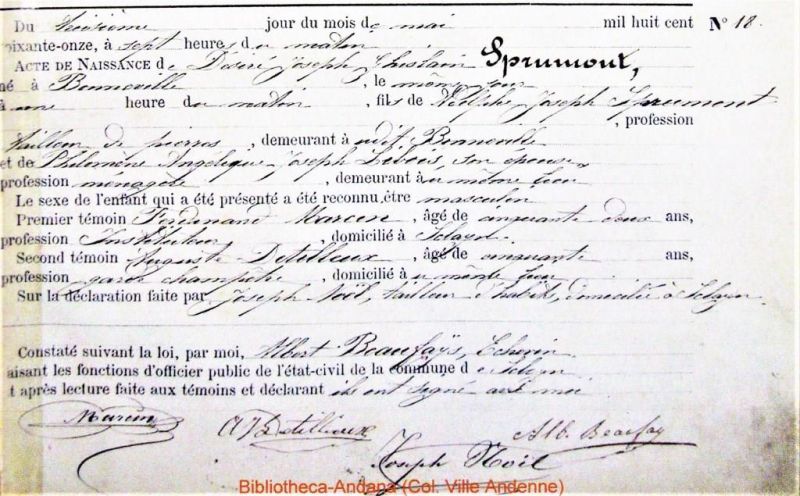 Du troisième jour du mois de mai mil huit cent N° 18.
oixante-onze, à sept heures du matin
ACTE DE NAISSANCE de Désiré Joseph Ghislain Sprumont,
né à Bonneville, le même jour
à une heure du matin, fils de Joseph Sprumont
, profession
tailleur de pierres, demeurant à udit Bonneville
et de Philomène Angélique Joseph Debois, son épouse
profession ménagère, demeurant au même lieu
Le sexe de l'enfant qui a été présenté a été reconnu être masculin
Premier témoin Ferdinand Marcin, âgé de cinquante deux ans,
profession Instituteur, domicilié à Sclayn.
Second témoin Auguste Detilleux, âgé de cinquante ans,
profession garde champêtre, domicilié au même lieu
Sur la déclaration faite par Joseph Noël, tailleur d'habits, domicilié à Sclayn.
Constaté suivant la loi, par moi, Albert Beaufaÿs, Echevin
aisant les fonctions d'officier public de l'état-civil de la commune de Sclayn
t après lecture faite aux témoins et déclarant ils ont signé avec moi
Marcin
A Detilleux
Alb. Beaufay
Joseph Noël
Bibliotheca-Andana (Col. Ville Andenne)